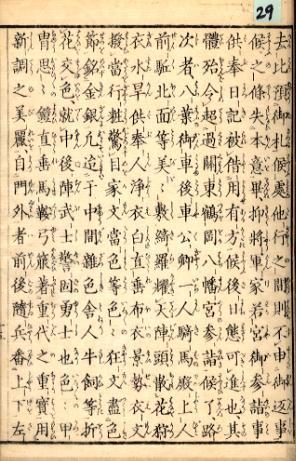 29
去比預御札候處他行之間則不申御返事
候之條失本意畢抑將軍家若宮御參詣事
供奉日記被借用有方候後日態可進也其
體殆今超過關東鶴岡八幡宮參詣候了路
次者八葉御車後車公卿一人騎馬殿上人
前駈北面等美々敷綺羅耀天陣頭散花狩
衣水旱供奉人淨衣白直垂布衣景勢文衣
擬當行粧驚目家文當色等色々狂文盡色
節銘金銀凡迄于中間雜色舍人牛飼等折
花交色就中後陣武士警固勇士也色々甲
冑思々鎧直垂馬鞍弓箙著重代之重寳用
新調之美麗自門外者前後隨兵番上下左